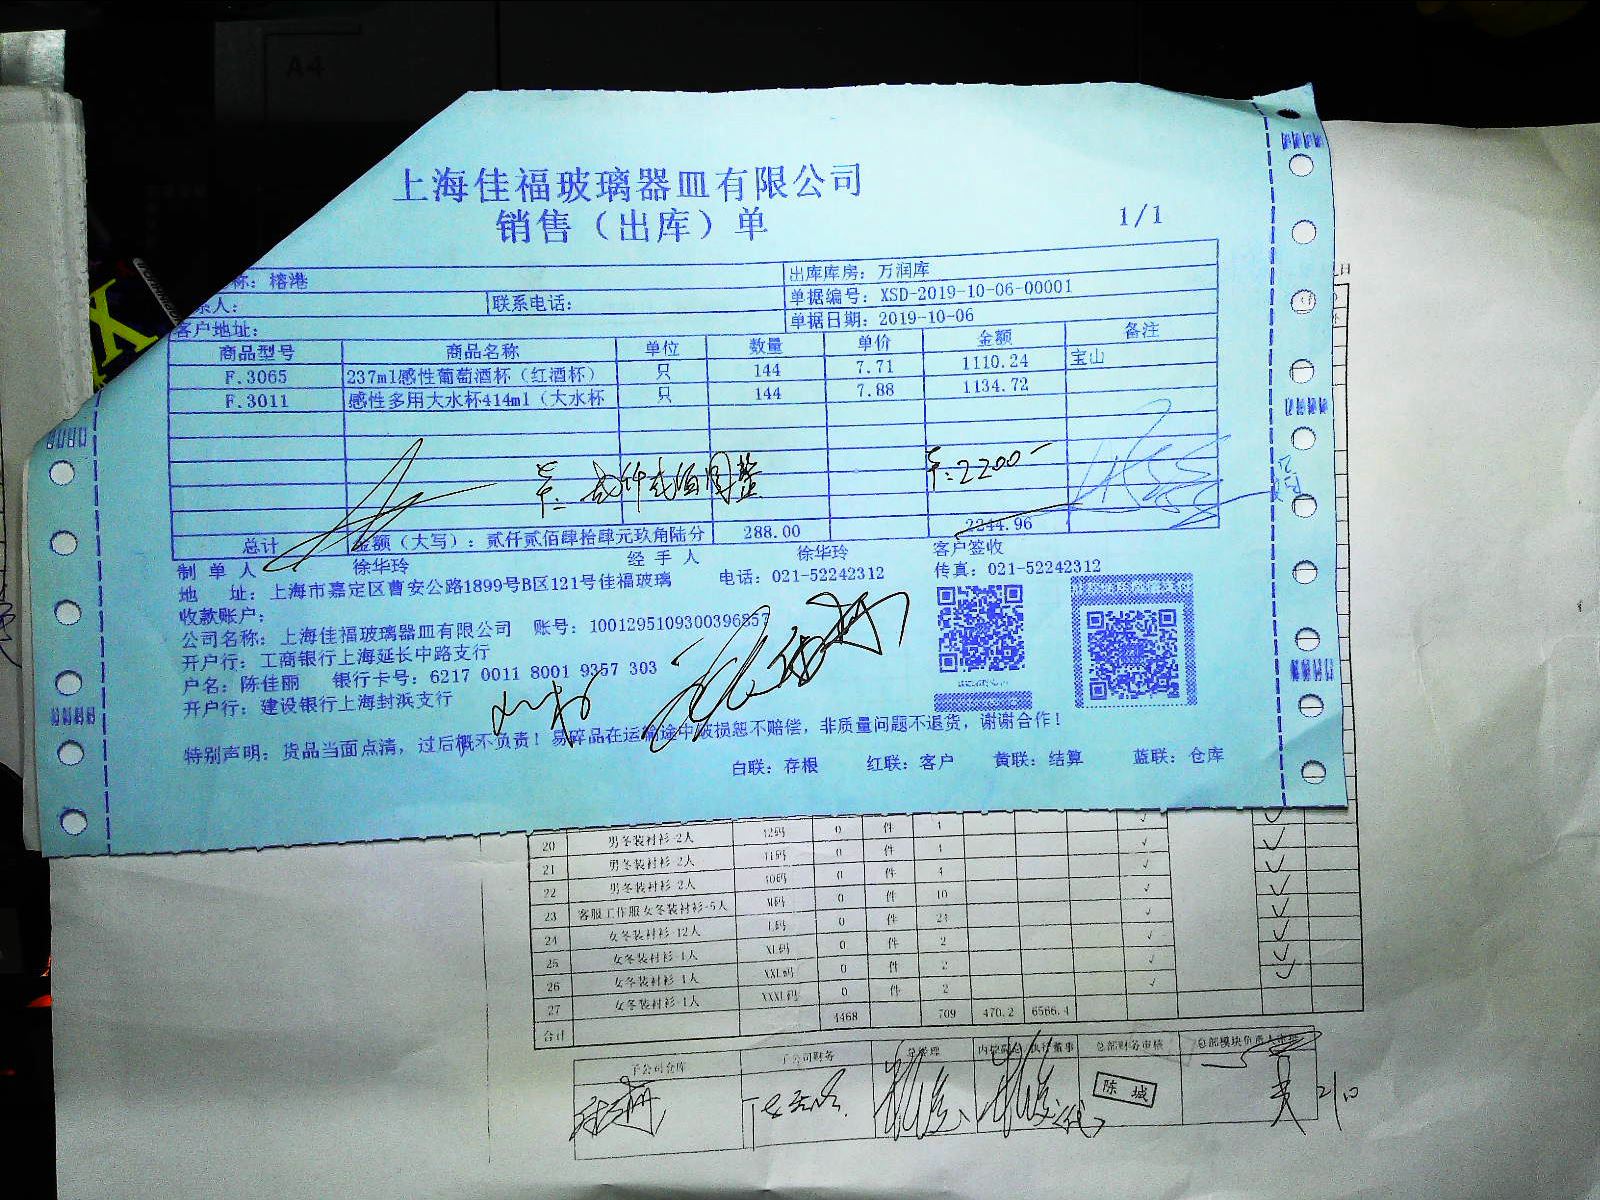 A4
上海佳福玻璃器皿有限公司
销售（出库）单
1/1
称：榕港
出库库房：万润库
系人：
联系电话：
单据编号：XSD-2019-10-06-00001
客户地址：
单据日期：2019-10-06
商品型号 商品名称 单位 数量 单价 金额 备注
F.3065 237ml感性葡萄酒杯（红酒杯） 只 144 7.71 1110.24 宝山
F.3011 感性多用大水杯414ml（大水杯 只 144 7.88 1134.72
¥：2200-
总计 金额（大写）：贰仟贰佰肆拾肆元玖角陆分 288.00 2244.96
制单人 徐华玲 经手人 徐华玲 客户签收
地 址：上海市嘉定区曹安公路1899号B区121号佳福玻璃 电话：021-52242312 传真：021-52242312
收款账户：
公司名称：上海佳福玻璃器皿有限公司 账号：1001295109300396857
开户行：工商银行上海延长中路支行
户名：陈佳丽 银行卡号：6217 0011 8001 9357 303
开户行：建设银行上海封浜支行
特别声明：货品当面点清，过后概不负责！易碎品在运输途中破损恕不赔偿，非质量问题不退货，谢谢合作！
白联：存根 红联：客户 黄联：结算 蓝联：仓库
20 男冬装衬衫-2人 42码 0 件 4
21 男冬装衬衫-2人 41码 0 件 4
22 男冬装衬衫-2人 40码 0 件 4
23 客服工作服女冬装衬衫-5人 M码 0 件 10
24 女冬装衬衫-12人 L码 0 件 24
25 女冬装衬衫-1人 XL码 0 件 2
26 女冬装衬衫-1人 XXL码 0 件 2
27 女冬装衬衫-1人 XXXL码 0 件 2
合计 4468 709 470.2 6566.4
子公司仓库 子公司财务 总经理 执行董事 总部财务审核 总部模块负责人审核
陈城